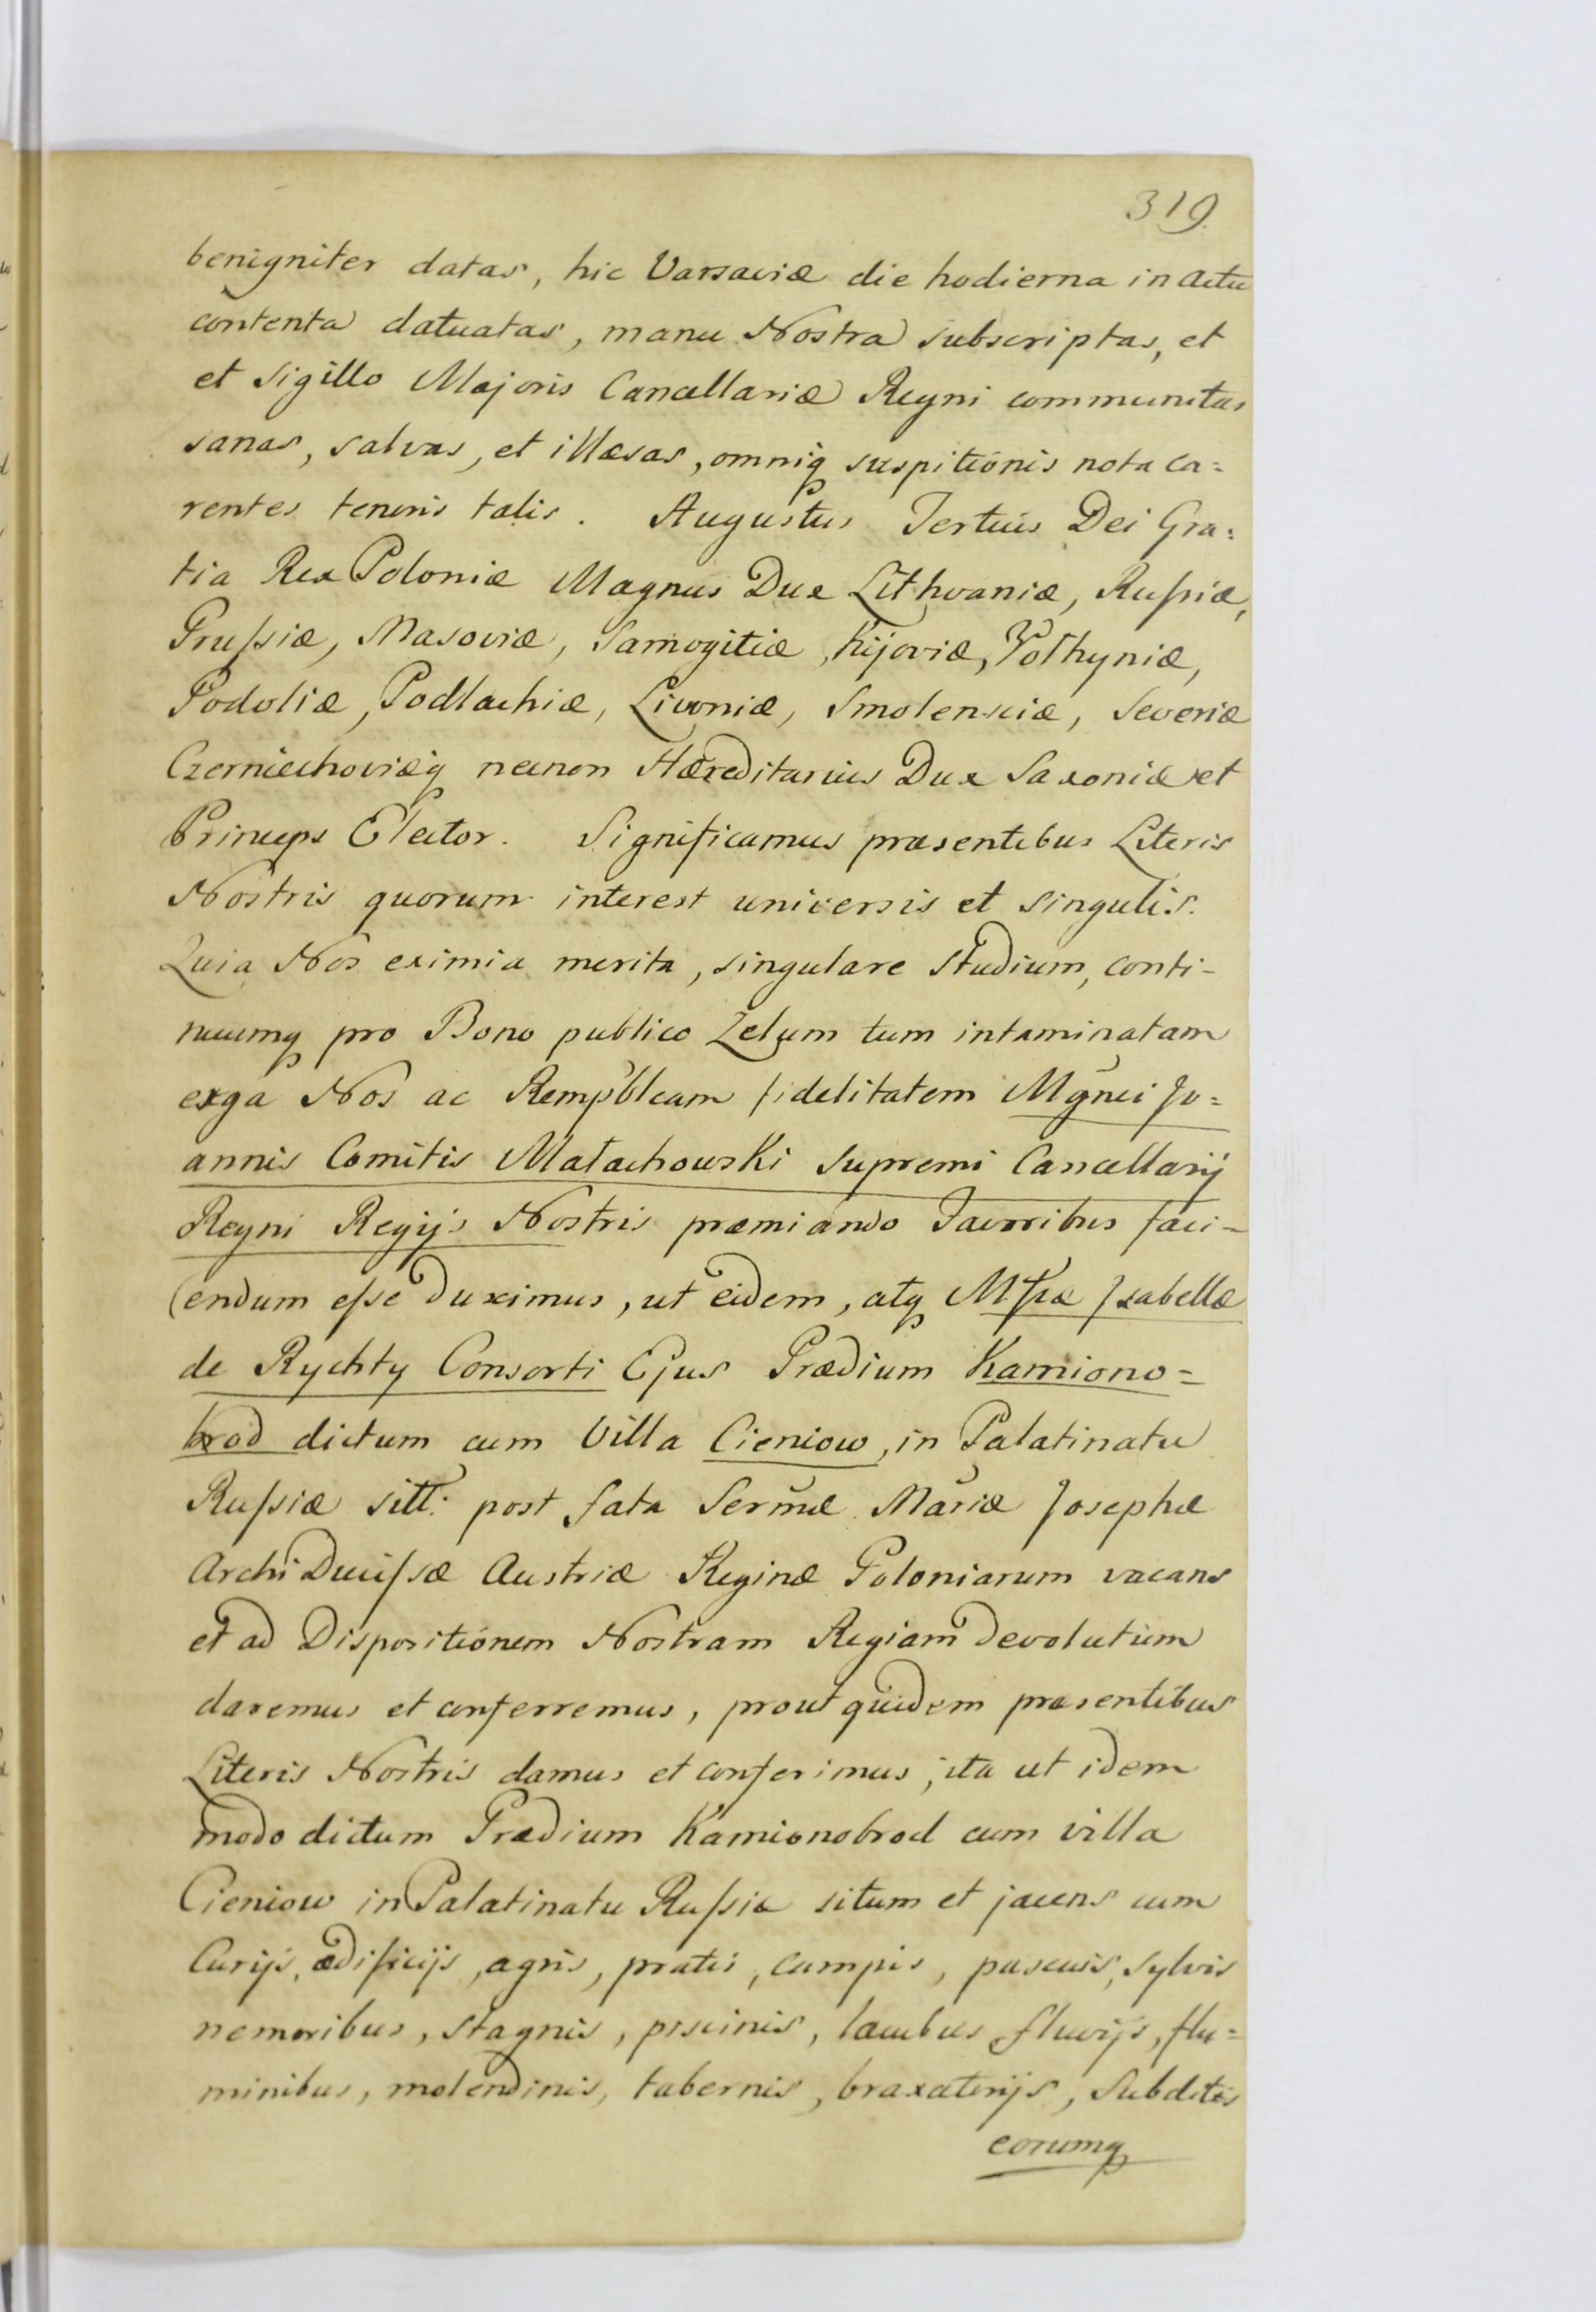 319.
benigniter datas, hic Varsaviæ die hodierna in actu
contenta datuatas, manu Nostra subscriptas, et
et sigillo Majoris Cancellariæ Regni communitas
sanas, salvas, et illæsas, omniq suspitionis nota ca=
rentes tenoris talis. Augustus Tertius Dei Gra=
tia Rex Poloniæ Magnus Dux Lithvaniæ, Rußiæ,
Prußiæ, Masoviæ, Samogitiæ, Kijoviæ, Volhyniæ,
Podoliæ, Podlachiæ, Livoniæ, Smolensciæ, Severiæ
Czerniechoviæq necnon Hæreditarius Dux Saxoniæ et
Princeps Elector. Significamus præsentibus Literis
Nostris quorum interest universis et singulis.
Quia Nos eximia merita, singulare studium, conti-
nuumq pro Bono publico Zelum tum intaminatam
erga Nos ac Rempblcam fidelitatem Mgnci Jo=
annis Comitis Małachowski Supremi Cancellarij
Regni Regijs Nostris præmiando Favoribus faci-
endum eße duximus, ut eidem, atq Mfcæ Isabellæ
de Rychty Consorti Ejus Prædium Kamiono=
brod dictum cum Villa Cieniow, in Palatinatu
Rußiæ sitt: post fata Sermæ Mariæ Josephæ
Archi Ducißæ Austriæ Reginæ Poloniarum vacans
et ad Dispositionem Nostram Regiam devolutum
daremus et conferremus, prout quidem præsentibus
Literis Nostris damus et conferimus, ita ut idem
modo dictum Prædium Kamionobrod cum villa
Cieniow in Palatinatu Rußiæ situm et jacens cum
Curijs, ædificijs, agris, pratis, campis, pascuis, sylvis
nemoribus, stagnis, piscinis, lacubus fluvijs, flu=
minibus, molendinis, tabernis, braxatorijs, Subditis
eorumq